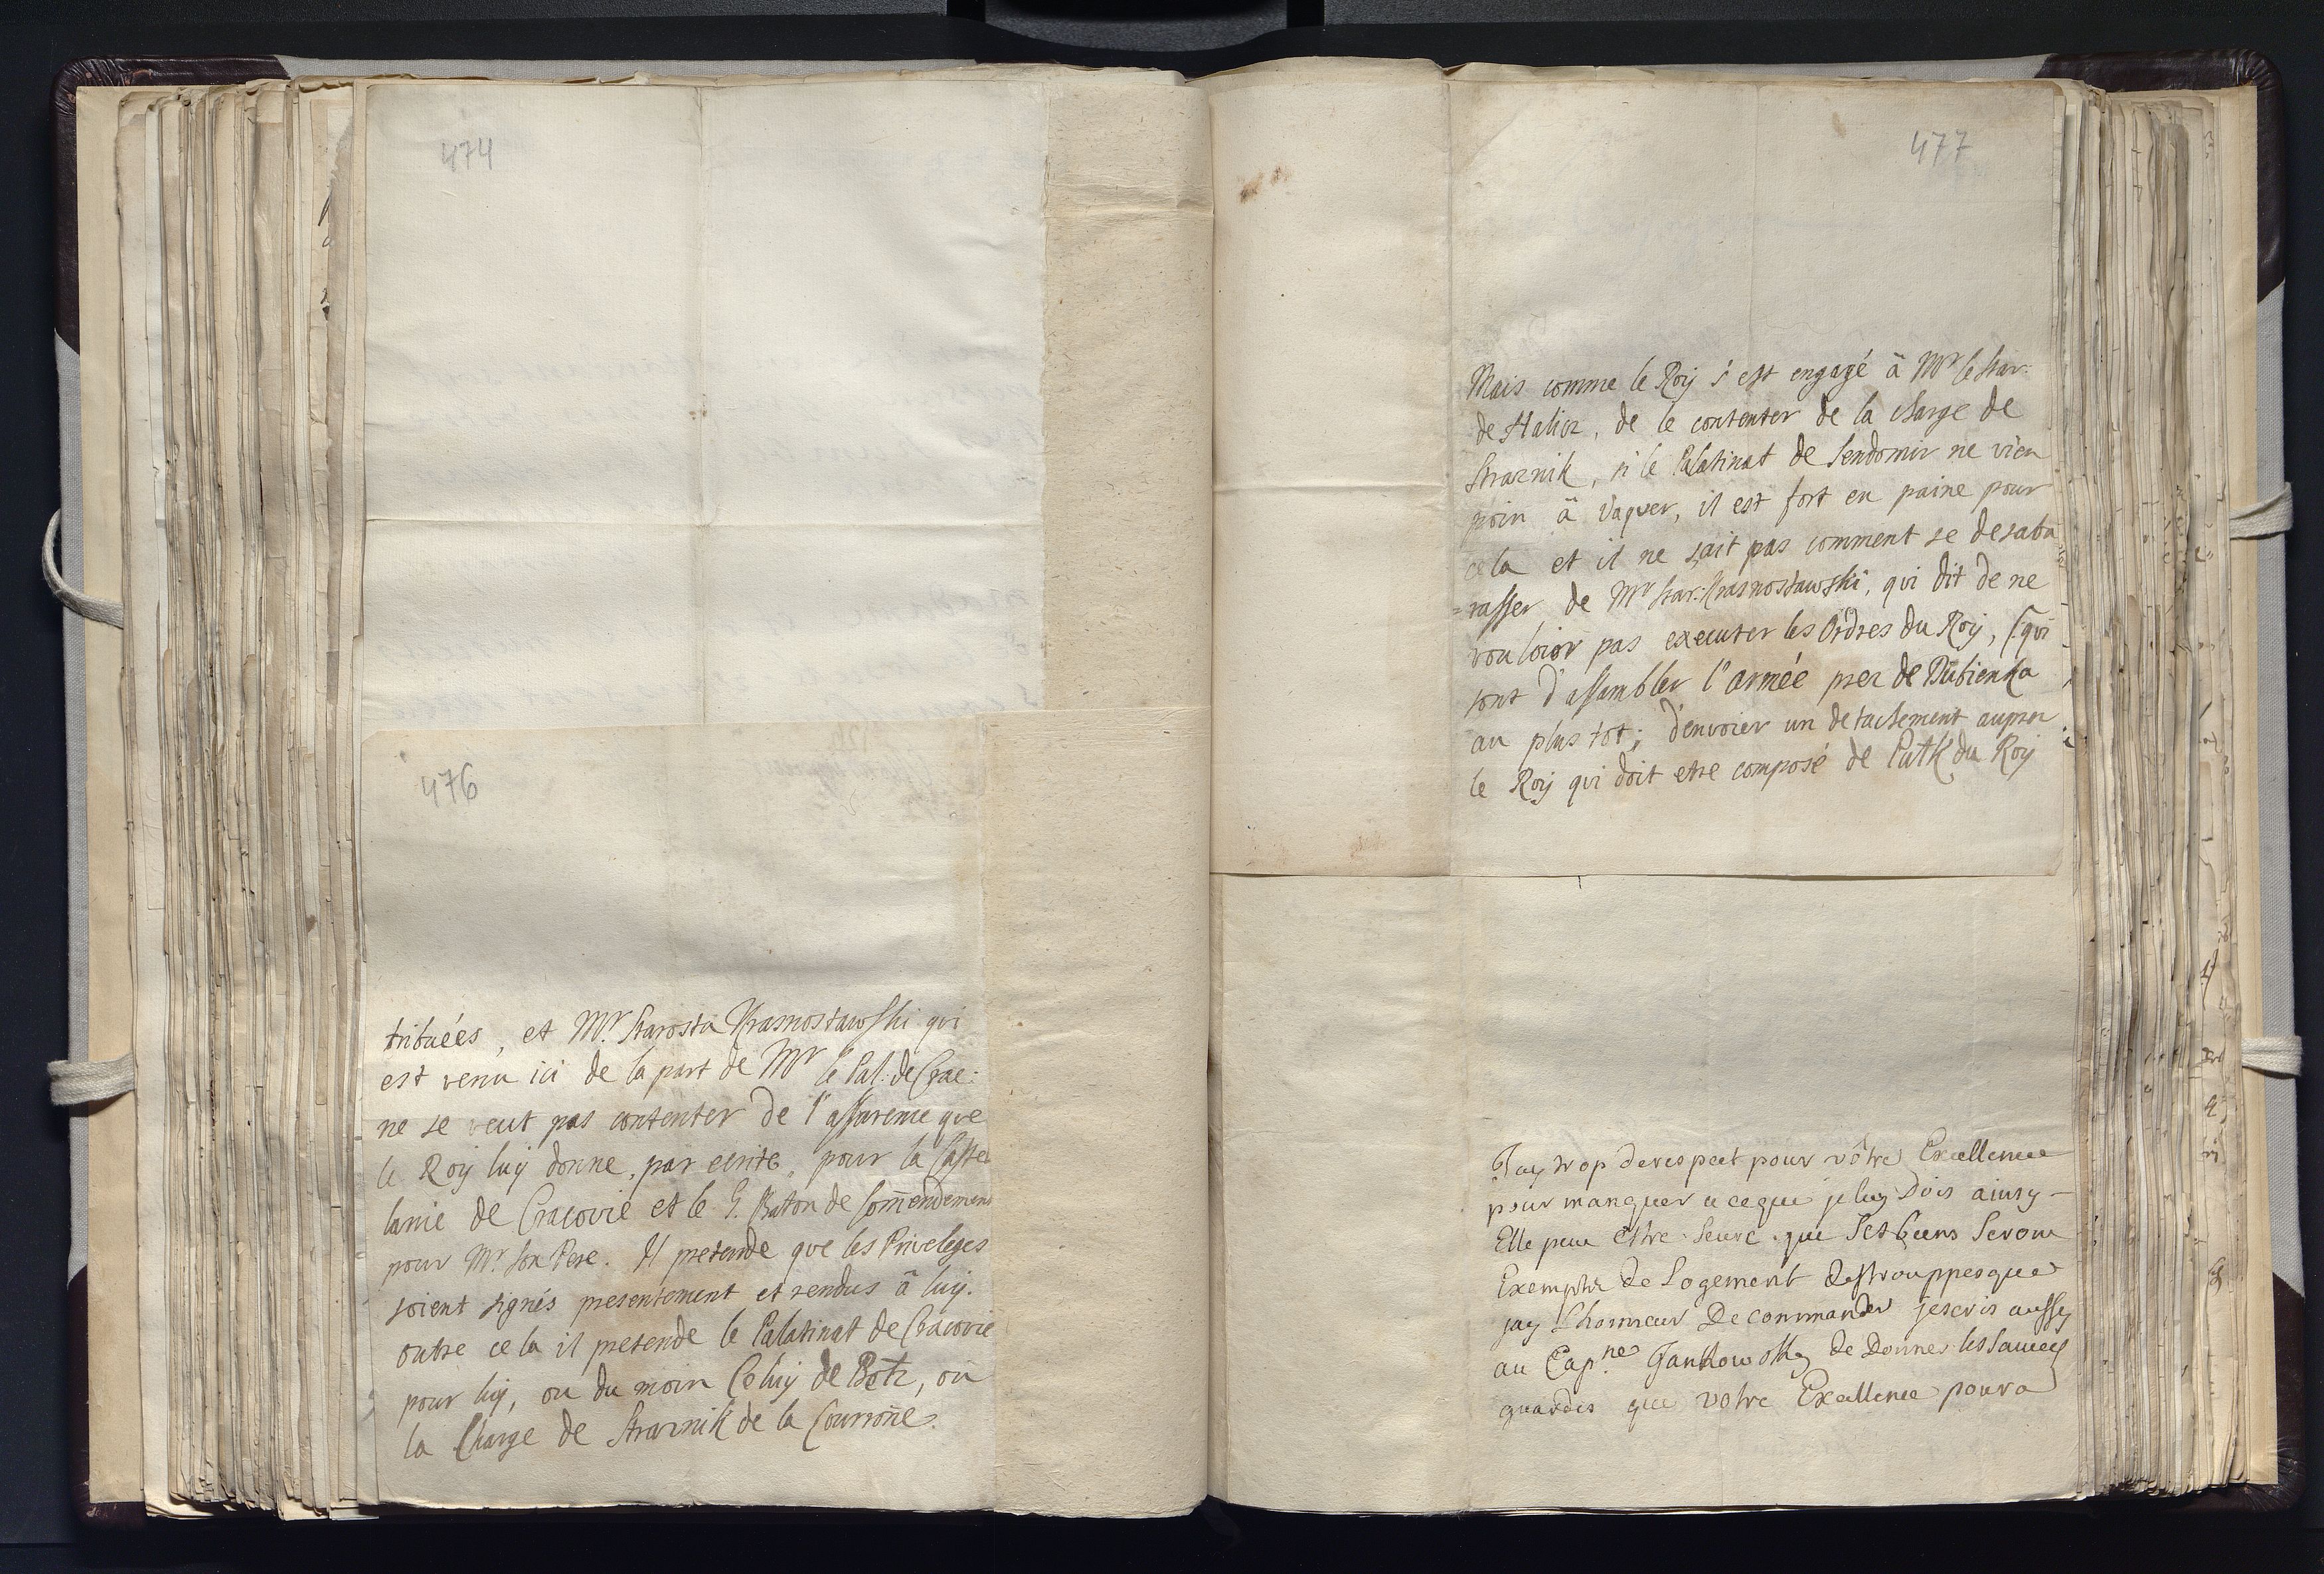 474
476
tribuées, et Mr. Starosta Krasnostawski qui
est venu ici de la part de Mr le Pal: de Crac:
ne se veut pas contenter de l'assurence que
le Roy luy donne, par ecrite, pour la Castel
lanie de Cracovie et le G. Baton de Comendement
pour Mr. son Pere. Il pretende que les Priveleges
soient signés presentement et rendus à luy.
outre cela il pretende le Palatinat de Cracovie
pour luy, ou du moin Celuy de Betz, ou
la Charge de Straznik de la Couronne.
477
Mais comme le Roy s'est engagé à Mr le Star:
de Halicz, de le contenter de la charge de
Straznik, si le Palatinat de Sendomir ne vien
poin à vaquer, il est fort en paine pour
cela et il ne sait pas comment se desaba
=rasser de Mr Star: Krasnostawski, qui dit de ne
vouloior pas executer les Ordres du Roy, (:qui
sont d'assambler l'armée prez de Dubienka
au plus tot; d'envoier un detachement auprez
le Roy qui doit etre composé de Pulk du Roy
Jay trop de respect pour vôtre Excellence
pour manquer a ce que je luy Dois ainsy
Elle peut Estre seure que Ses biens Seront
Exempts de Logement des trouppes que
jay L'honneur De commander jescris aussy
au Cap.ne Jankowsky de Donner les sauves
guardes que votre Excellence poura